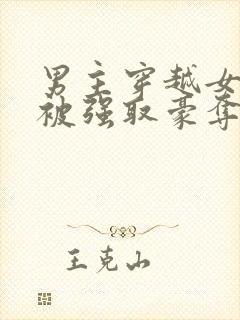 男主穿越女
被强取豪夺
王克山